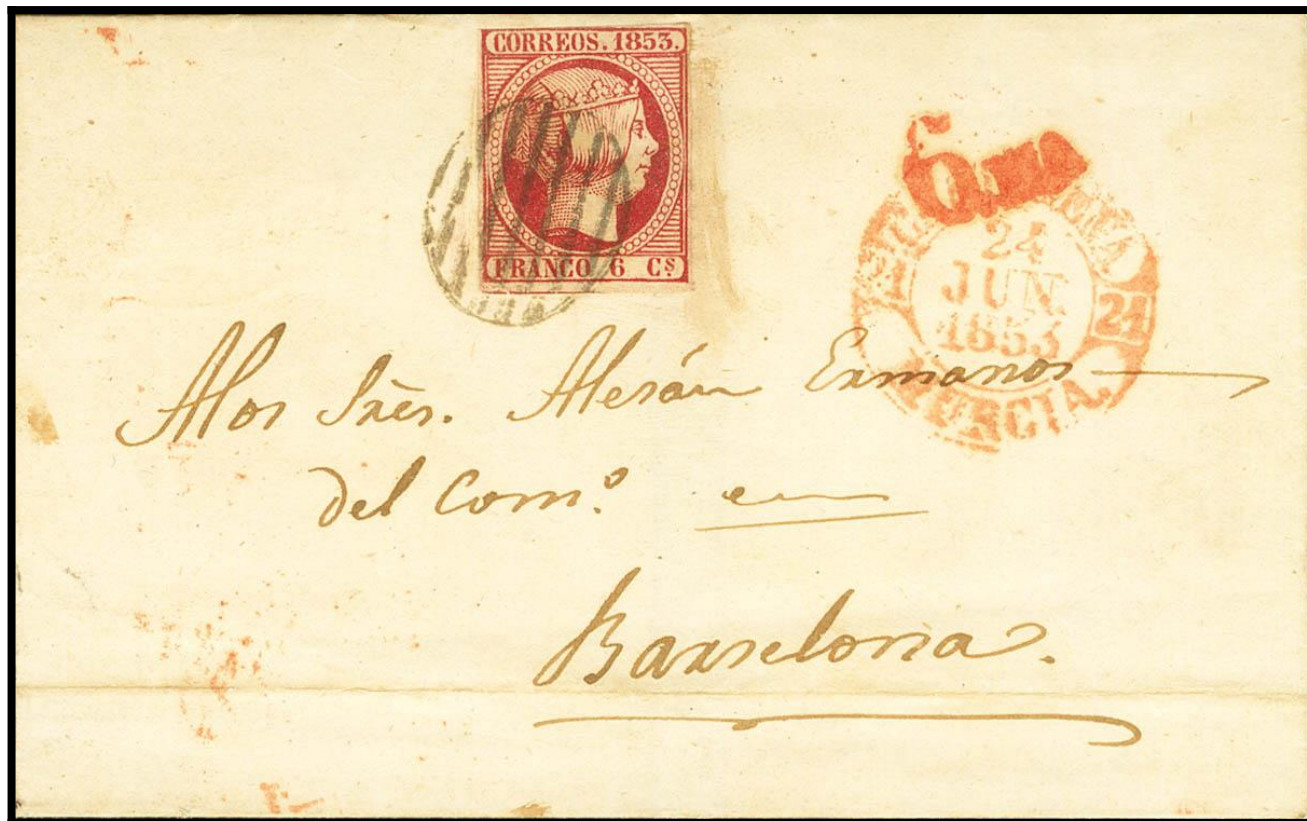 CORREOS. 1853.
FRANCO 6 Cs
24
JUN.
1853
21
MURCIA.
A los Sres. Alesán Ermanos
del Com.o en
Barselona.